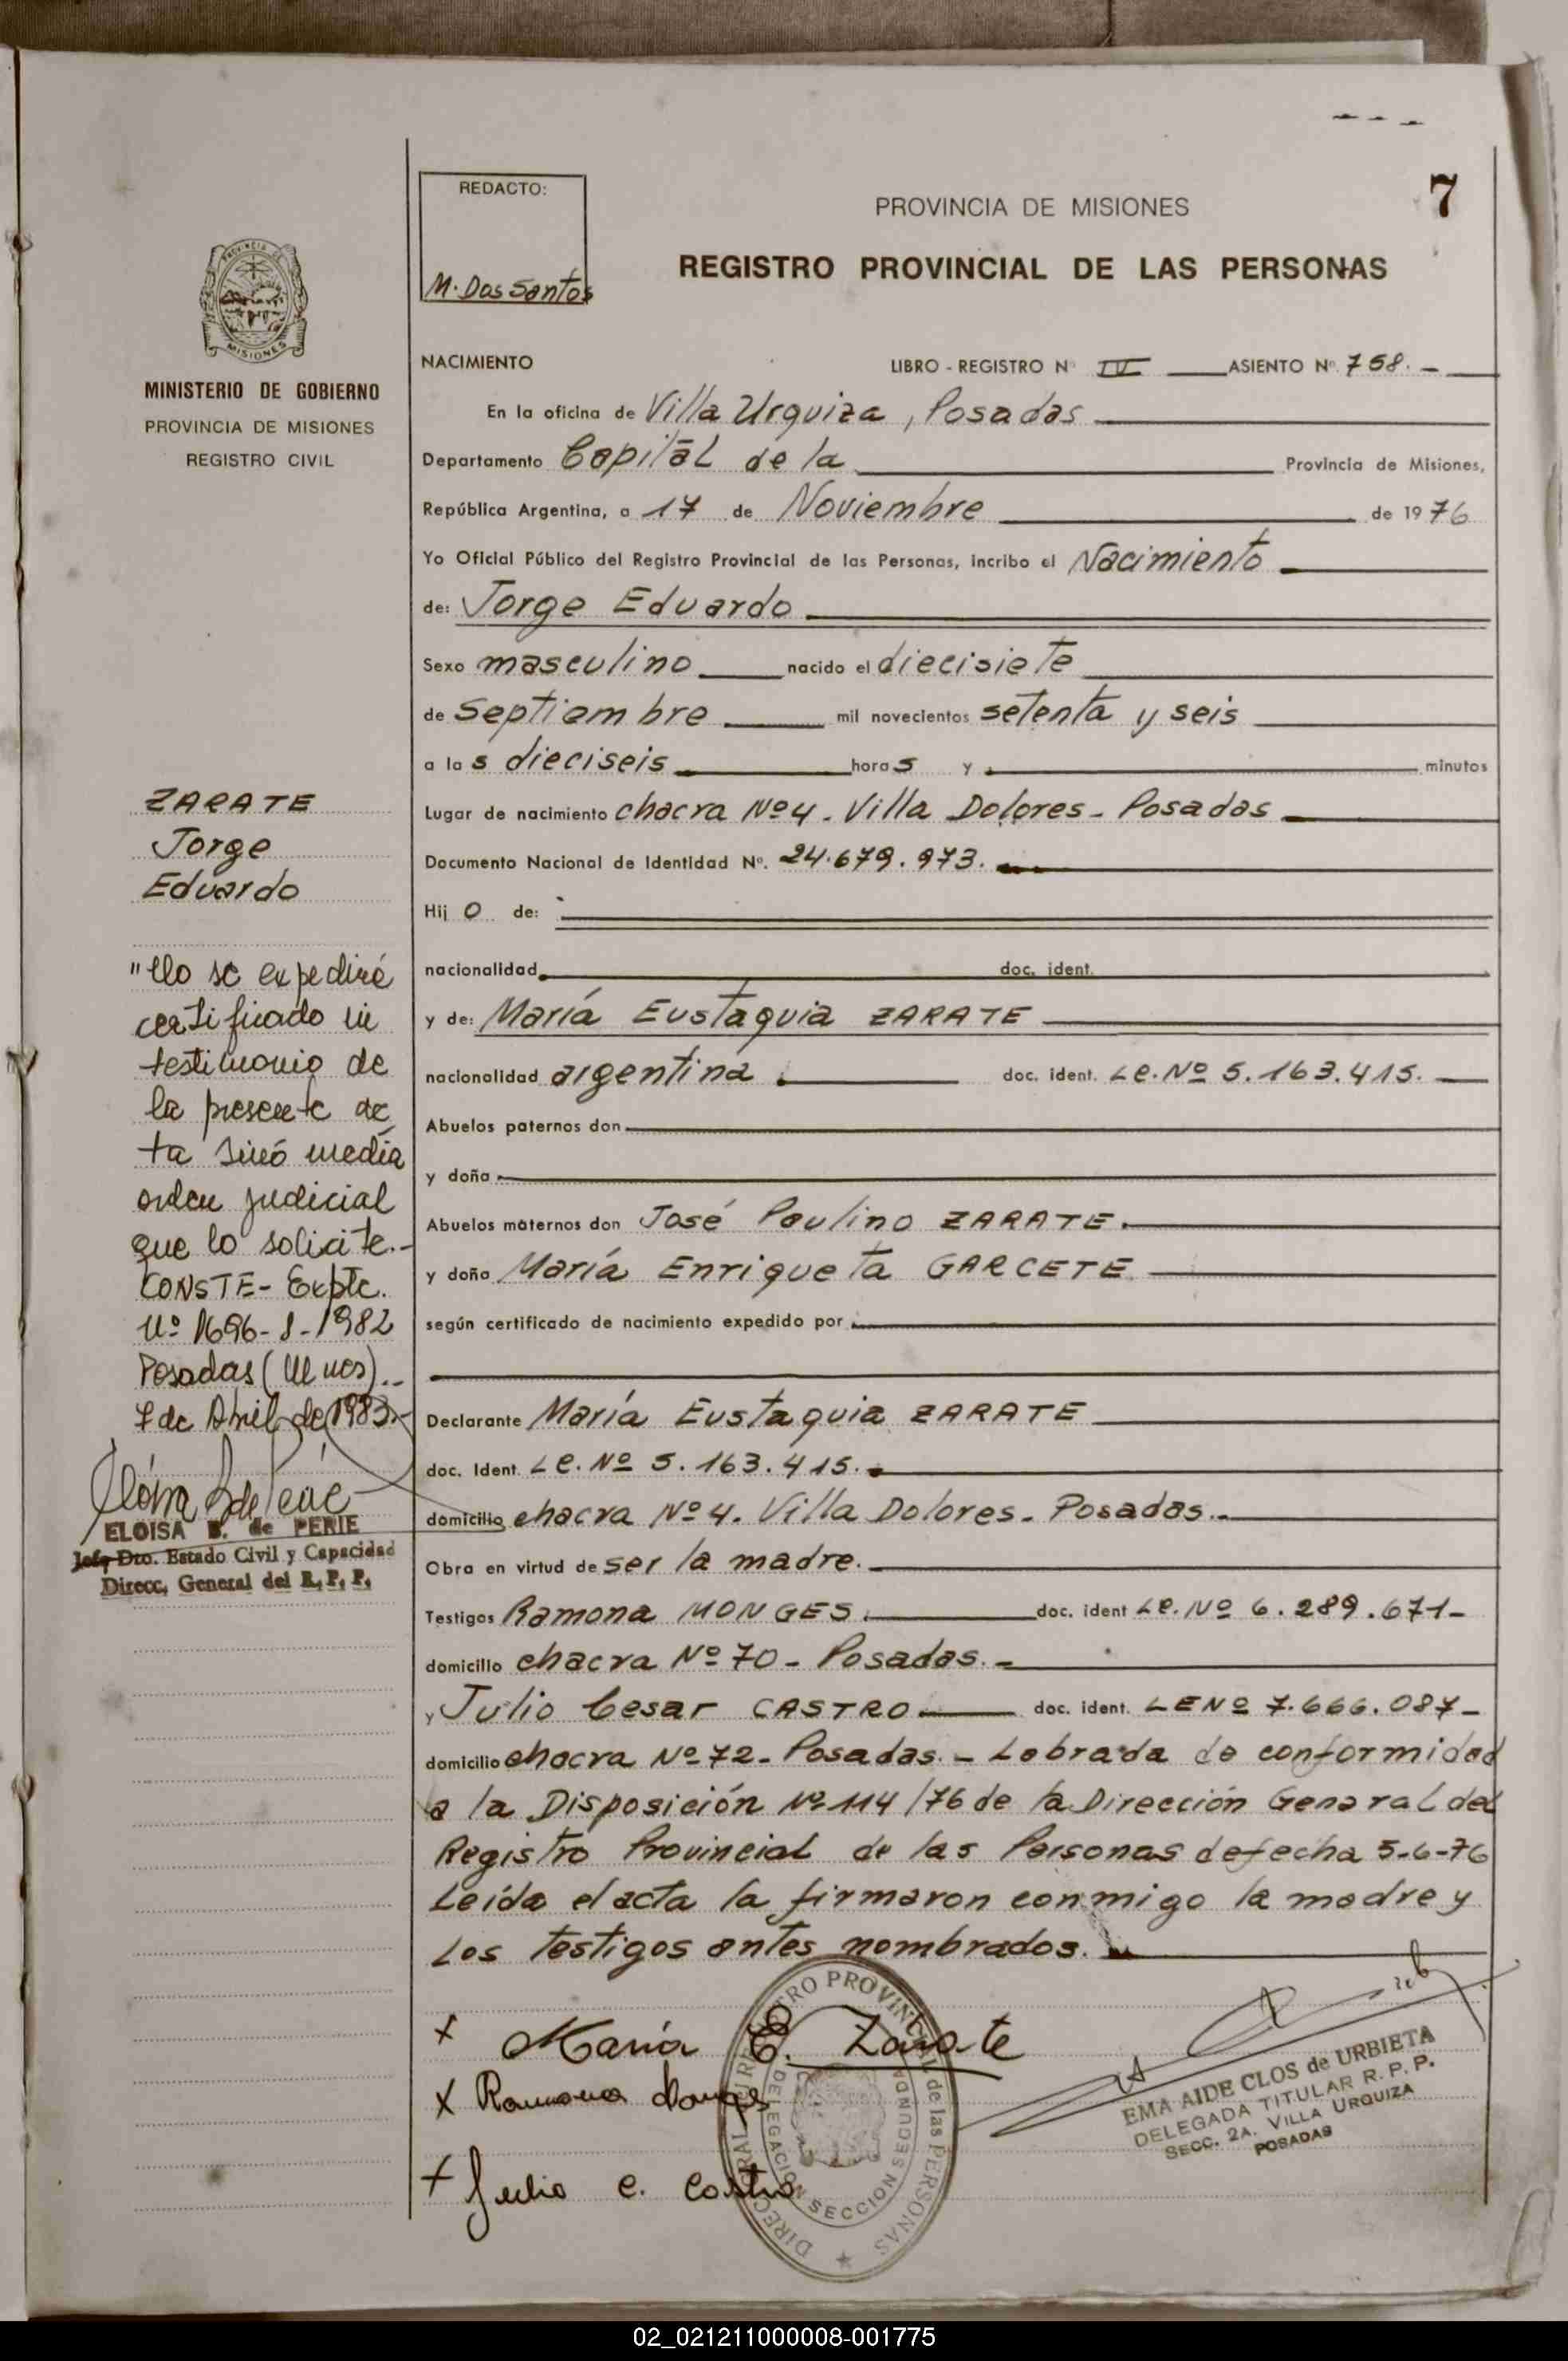 7
REDACTO:
M. Dos Santos
PROVINCIA DE MISIONES
REGISTRO PROVINCIAL DE LAS PERSONAS
PROVINCIA DE
MISIONES
MINISTERIO DE GOBIERNO
PROVINCIA DE MISIONES
REGISTRO CIVIL
NACIMIENTO LIBRO - REGISTRO Nº IV ASIENTO Nº 758. -
En la oficina de Villa Urquiza, Posadas
Departamento Capital de la Provincia de Misiones,
República Argentina, a 17 de Noviembre de 1976
Yo Oficial Público del Registro Provincial de las Personas, incribo el Nacimiento
de: Jorge Eduardo
Sexo masculino nacido el diecisiete
de Septiembre mil novecientos setenta y seis
a las dieciseis horas y minutos
Lugar de nacimiento chacra Nº 4. Villa Dolores - Posadas
Documento Nacional de Identidad Nº. 24.679.973.
Hijo de:
nacionalidad doc. ident.
y de: María Eustaquia ZARATE
nacionalidad argentina. doc. ident. Le. Nº 5.163.415.
Abuelos paternos don
y doña
Abuelos maternos don José Paulino ZARATE.
y doña María Enriqueta GARCETE
según certificado de nacimiento expedido por
Declarante María Eustaquia ZARATE
doc. Ident. Le. Nº 5.163.415.
domicilio chacra Nº 4. Villa Dolores - Posadas.
Obra en virtud de ser la madre.
Testigos Ramona MONGES. doc. ident Le. Nº 6.289.671-
domicilio chacra Nº 70 - Posadas. -
y Julio Cesar CASTRO doc. ident. LE Nº 7.666.087-
domicilio chacra Nº 72 - Posadas. - Labrada de conformidad
a la Disposición Nº 114/76 de la Dirección General del
Registro Provincial de las Personas de fecha 5-6-76
Leída el acta la firmaron conmigo la madre y
los testigos antes nombrados.
ZARATE
Jorge
Eduardo
"No se expediré
certificado ni
testimonio de
la presente ac
ta sinó media
orden judicial
que lo solicite.-
CONSTE- Expte.
Nº 1696-J-1982
Posadas (Mnes).-
7 de Abril de 1983.-
ELOISA B. de PERIE
Jefe Dto. Estado Civil y Capacidad
Direcc, General del R, P, P,
x María E. Zarate
x Ramona Monges
x Julio C. Castro
DIRECC GRAL REGISTRO PROVINCIAL de las PERSONAS
DELEGACION SECCION SEGUNDA
EMA AIDE CLOS de URBIETA
DELEGADA TITULAR R. P. P.
SECC. 2A. VILLA URQUIZA
POSADAS
02_021211000008-001775